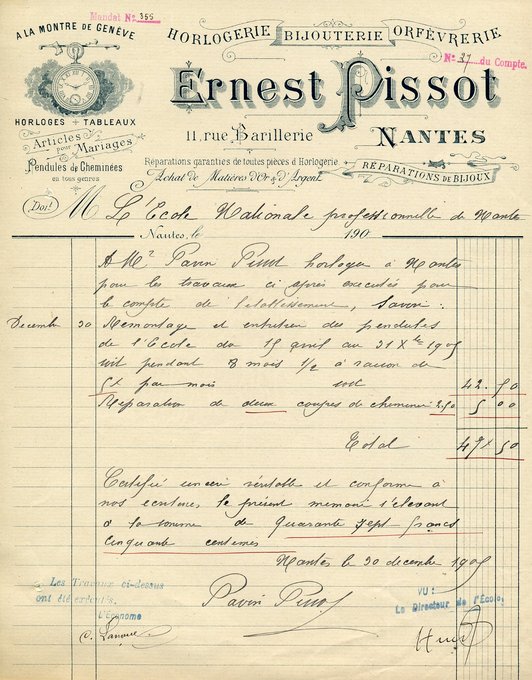 Mandat No. 355
A LA MONTRE DE GENÈVE
HORLOGERIE BIJOUTERIE ORFÈVRERIE
No. 37 du Compte.
Ernest Pissot
HORLOGES + TABLEAUX
11, rue Barillerie NANTES
Articles pour Mariages
Pendules de Cheminées
en tous genres
Réparations garanties de toutes pièces d'Horlogerie
Achat de Matières d'Or & d'Argent
RÉPARATIONS DE BIJOUX
Doit M L'École Nationale professionnelle de Nantes
Nantes, le 190
A Mr Pavin Pissot horloger à Nantes
pour les travaux ci après exécutés pour
le compte de l'établissement, Savoir :
Decembre 30 Remontage et entretien des pendules
de l'Ecole du 15 avril au 31 Xbre 1905
soit pendant 8 mois 1/2 à raison de
5f par mois soit 42.50
Réparation de deux coupes de cheminée 2.50 5 00
Total 47f 50
Certifié sincère véritable et conforme à
nos écritures le présent mémoire s'élevant
à la somme de quarante sept francs
cinquante centimes
Nantes le 30 décembre 1905
Les Travaux ci-dessus
ont été exécutés.
L'Économe
Pavin Pissot
VU :
Le Directeur de l'École,